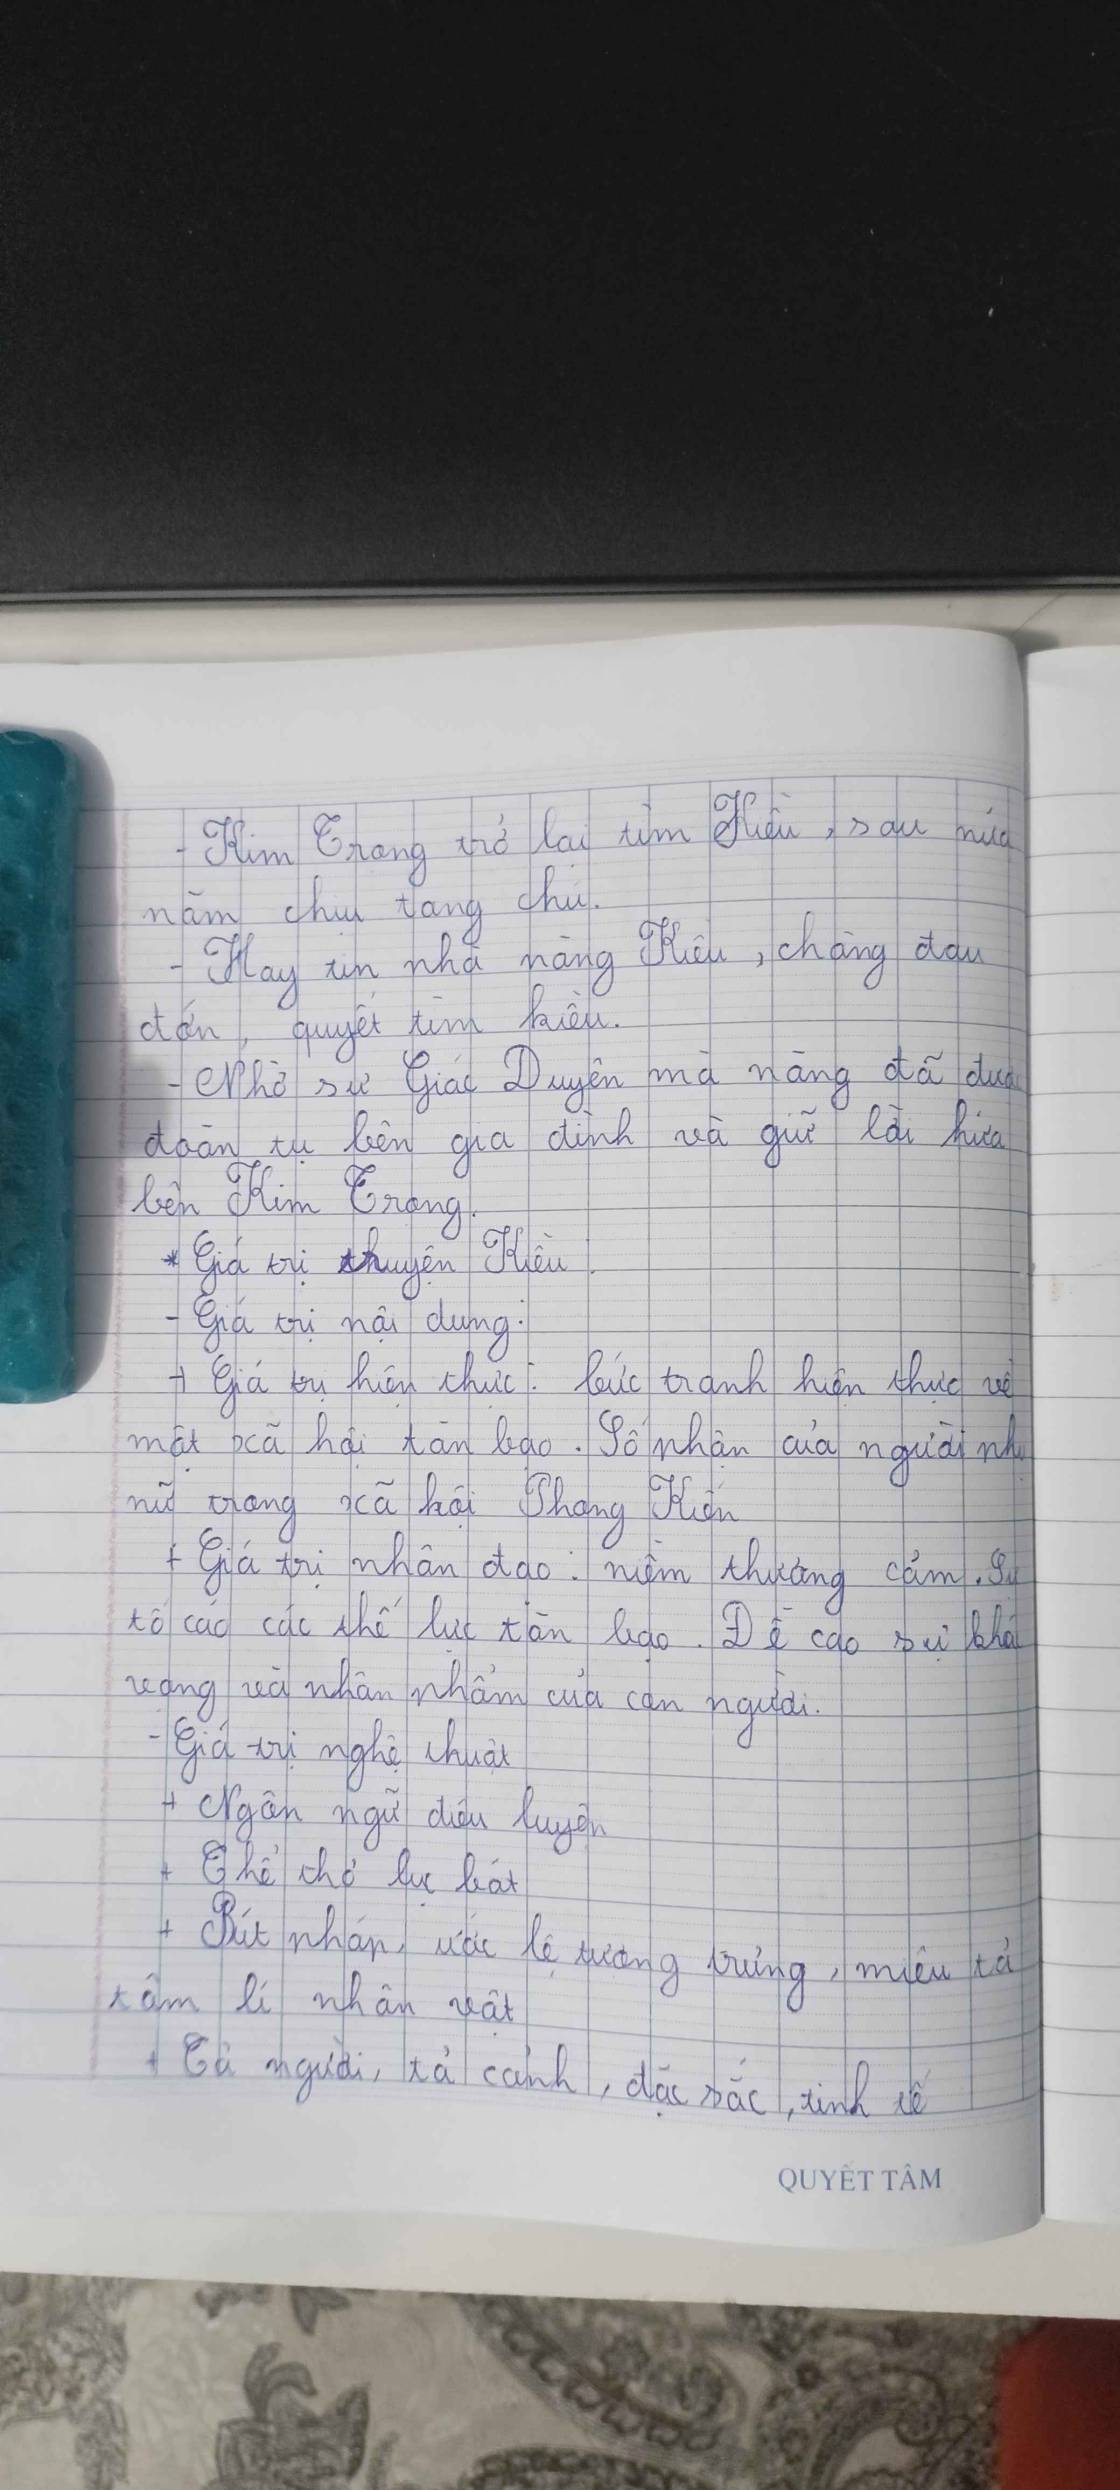 - Kim Trọng trở lại tìm Kiều, sau nửa
năm chịu tang chú.
- Hay tin nhà nàng Kiều, chàng đau
đớn, quyết tìm kiều.
- Nhờ sư Giác Duyên mà nàng đã được
đoàn tụ bên gia đình và giữ lời hứa
bên Kim Trọng.
* Giá trị thuyện Kiều.
- Giá trị nội dung:
+ Giá trị hiện thực: bức tranh hiện thực về
một xã hội tàn bạo. Số nhận của người
nữ trong xã hội Phong Kiến
+ Giá trị nhân đạo: niềm thương cảm. Sự
tố cáo các thế lực tàn bạo. Đề cao sự
vọng và nhân phẩm của con người.
- Giá trị nghệ thuật
+ Ngôn ngữ điêu luyện
+ Thể thơ lục bát
+ Bút pháp, ước lệ tượng trưng, miêu tả
tâm lí nhân vật
+ Tả người, tả cảnh, đặc sắc, tinh tế
QUYẾT TÂM